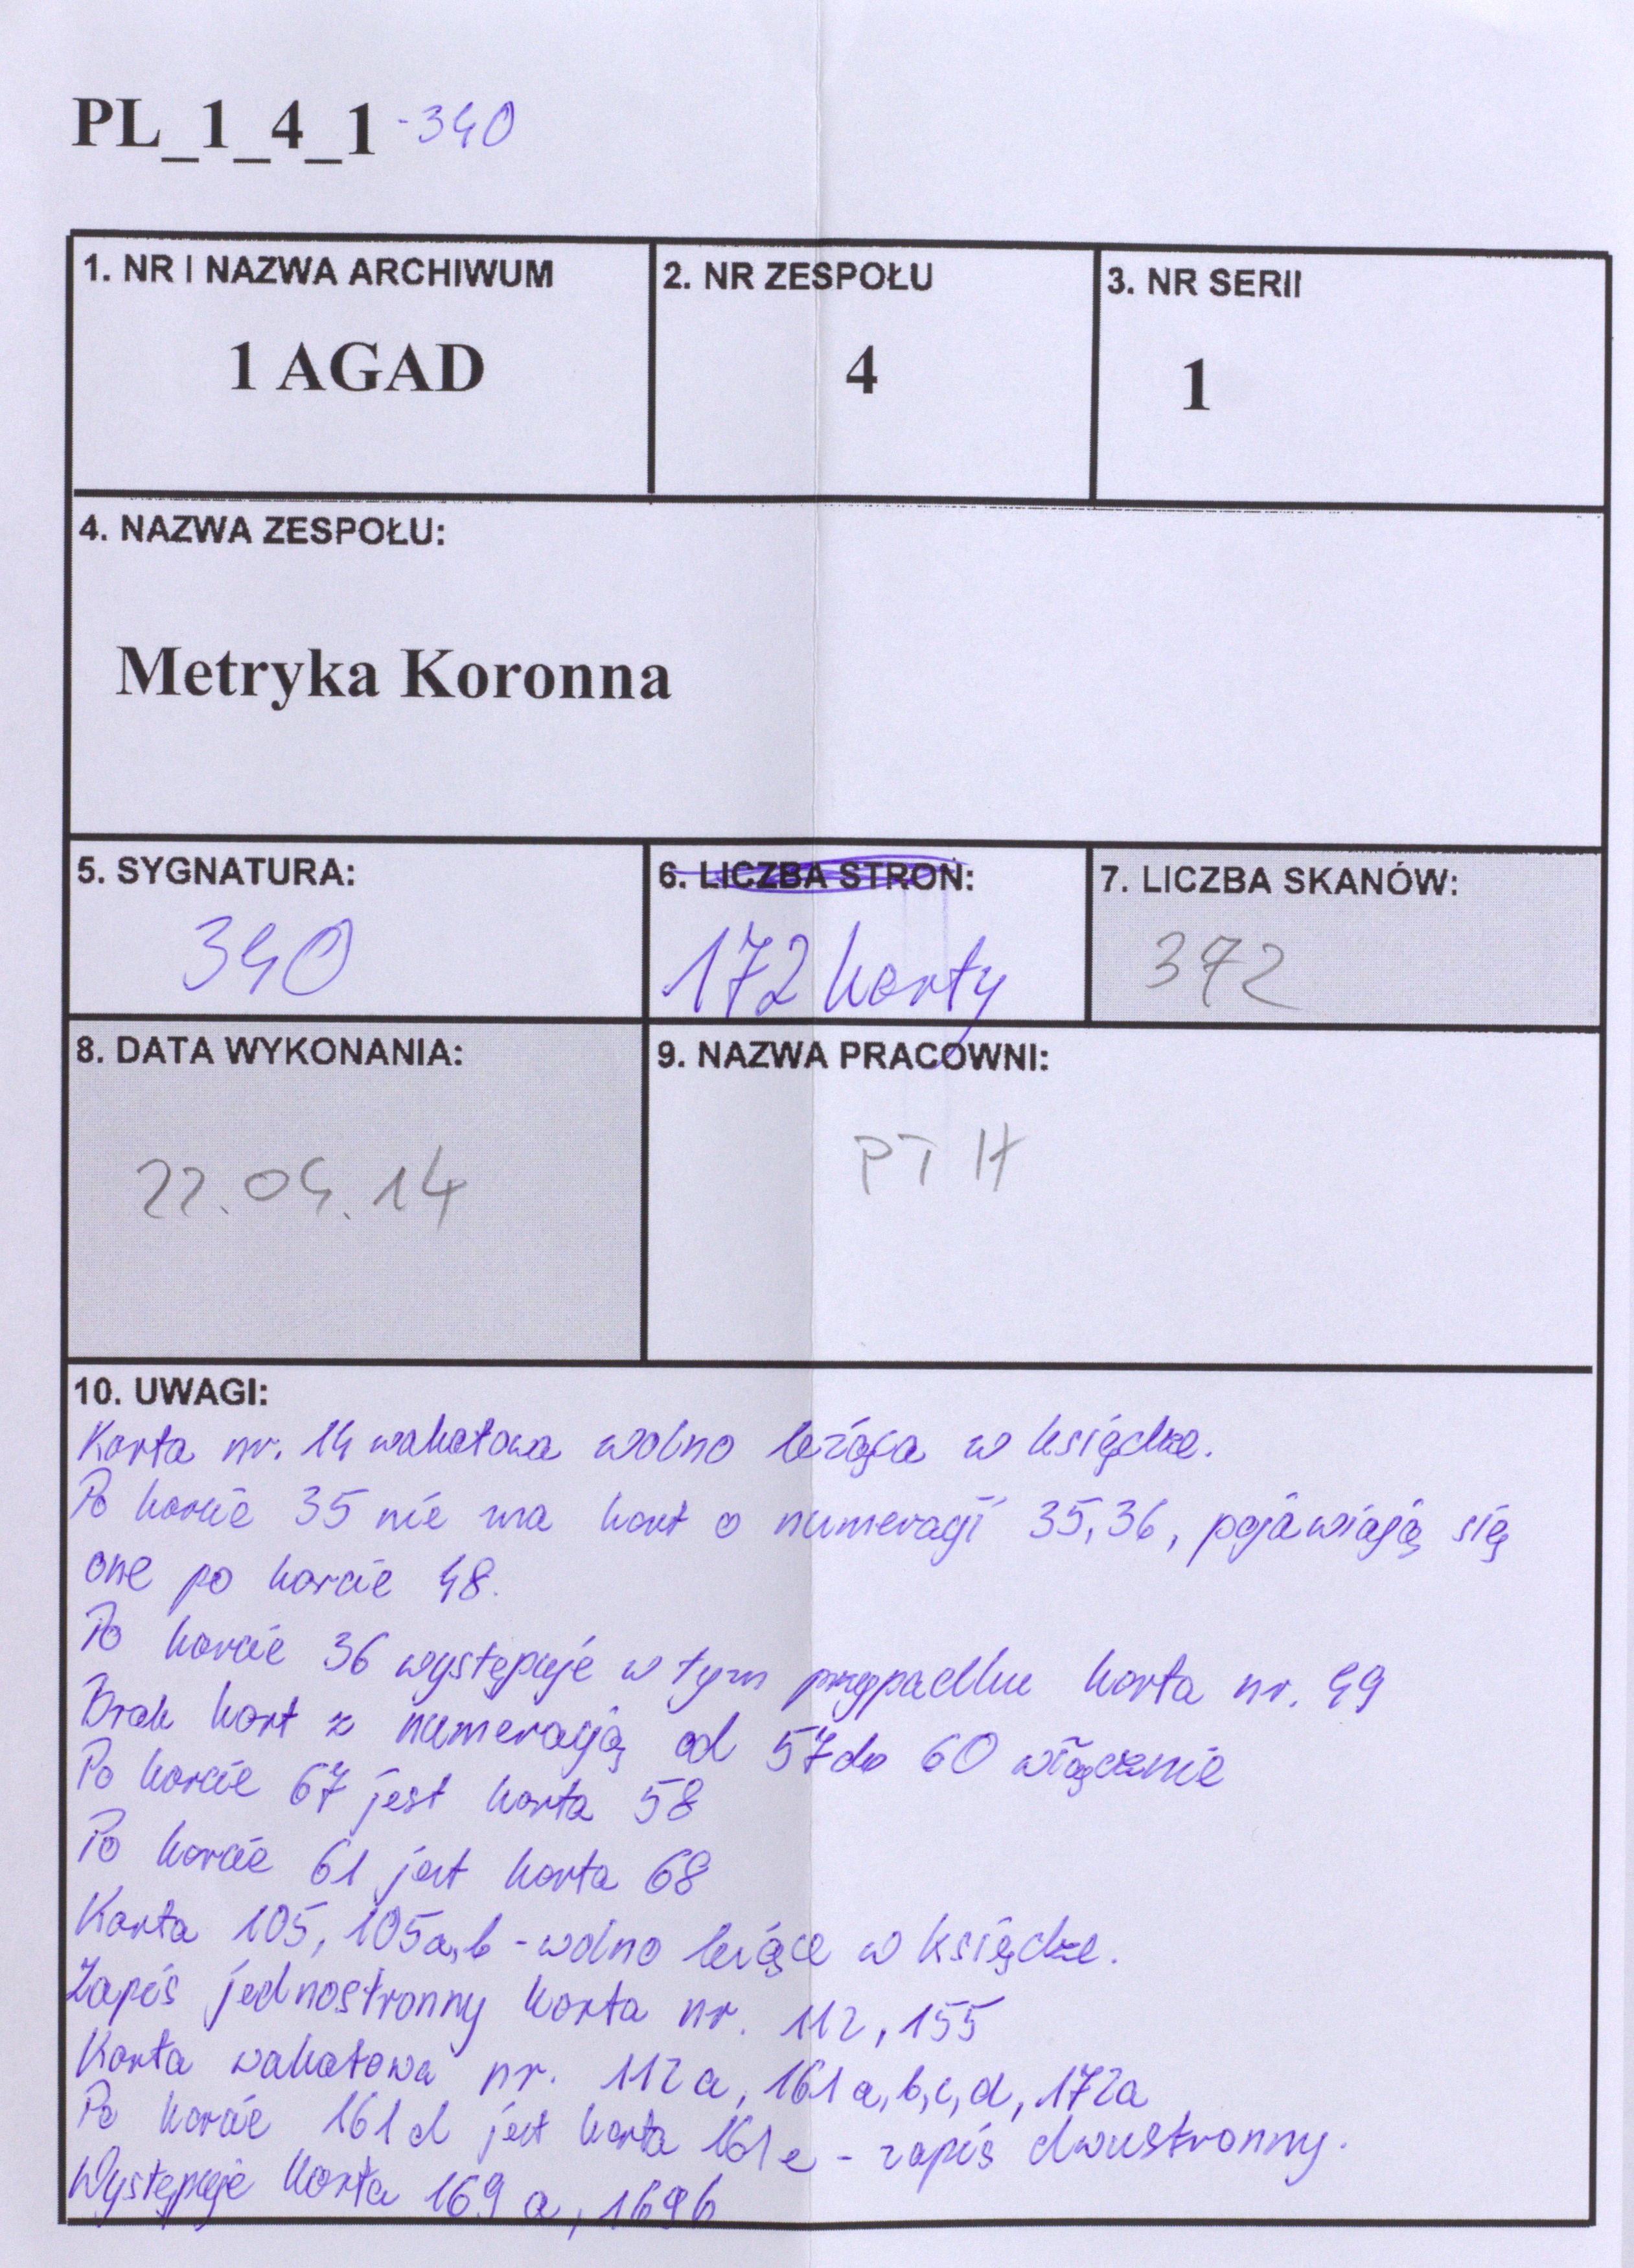 PL_1_4_1 -340
1. NR I NAZWA ARCHIWUM
1 AGAD
2. NR ZESPOŁU
4
3. NR SERII
1
4. NAZWA ZESPOŁU:
Metryka Koronna
5. SYGNATURA:
340
6. LICZBA STRON:
172 karty
7. LICZBA SKANÓW:
372
8. DATA WYKONANIA:
22.04.14
9. NAZWA PRACOWNI:
PTH
10. UWAGI:
Karta nr. 14 wakatowa wolno leżąca w księdze.
Po karcie 35 nie ma kart o numeracji 35,36, pojawiają się
one po karcie 48.
Po karcie 36 występuje w tym przypadku karta nr. 49
Brak kart z numeracją od 57 do 60 włącznie
Po karcie 67 jest karta 58
Po karcie 61 jest karta 68
Karta 105, 105a,b - wolno leżące w księdze.
Zapis jednostronny karta nr. 112, 155
Karta wakatowa nr. 112a, 161a,b,c,d, 172a
Po karcie 161d jest karta 161e - zapis dwustronny.
Występuje karta 169a, 169b